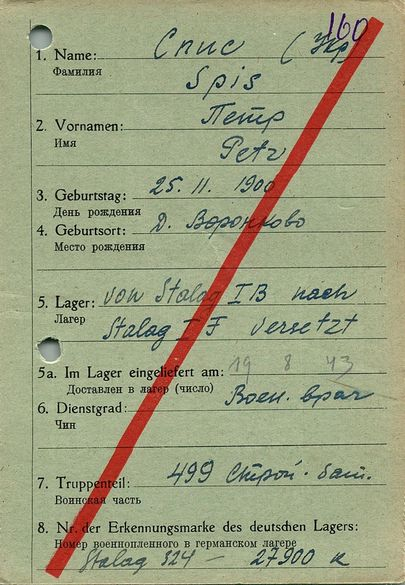 160
1. Name: Спис (Укр)
Фамилия
Spis
2. Vornamen: Петр
Имя
Petr
3. Geburtstag: 25. 11. 1900
День рождения
4. Geburtsort: Д. Воронково
Место рождения
5. Lager: von Stalag I B nach
Лагер
Stalag I F versetzt
5a. Im Lager eingeliefert am: 19 8 43
Доставлен в лагер (число)
6. Dienstgrad: Воен. врач
Чин
7. Truppenteil: 499 Строй. бат.
Воинская часть
8. Nr. der Erkennungsmarke des deutschen Lagers:
Номер военнопленного в германском лагере
Stalag 324 — 27900 к